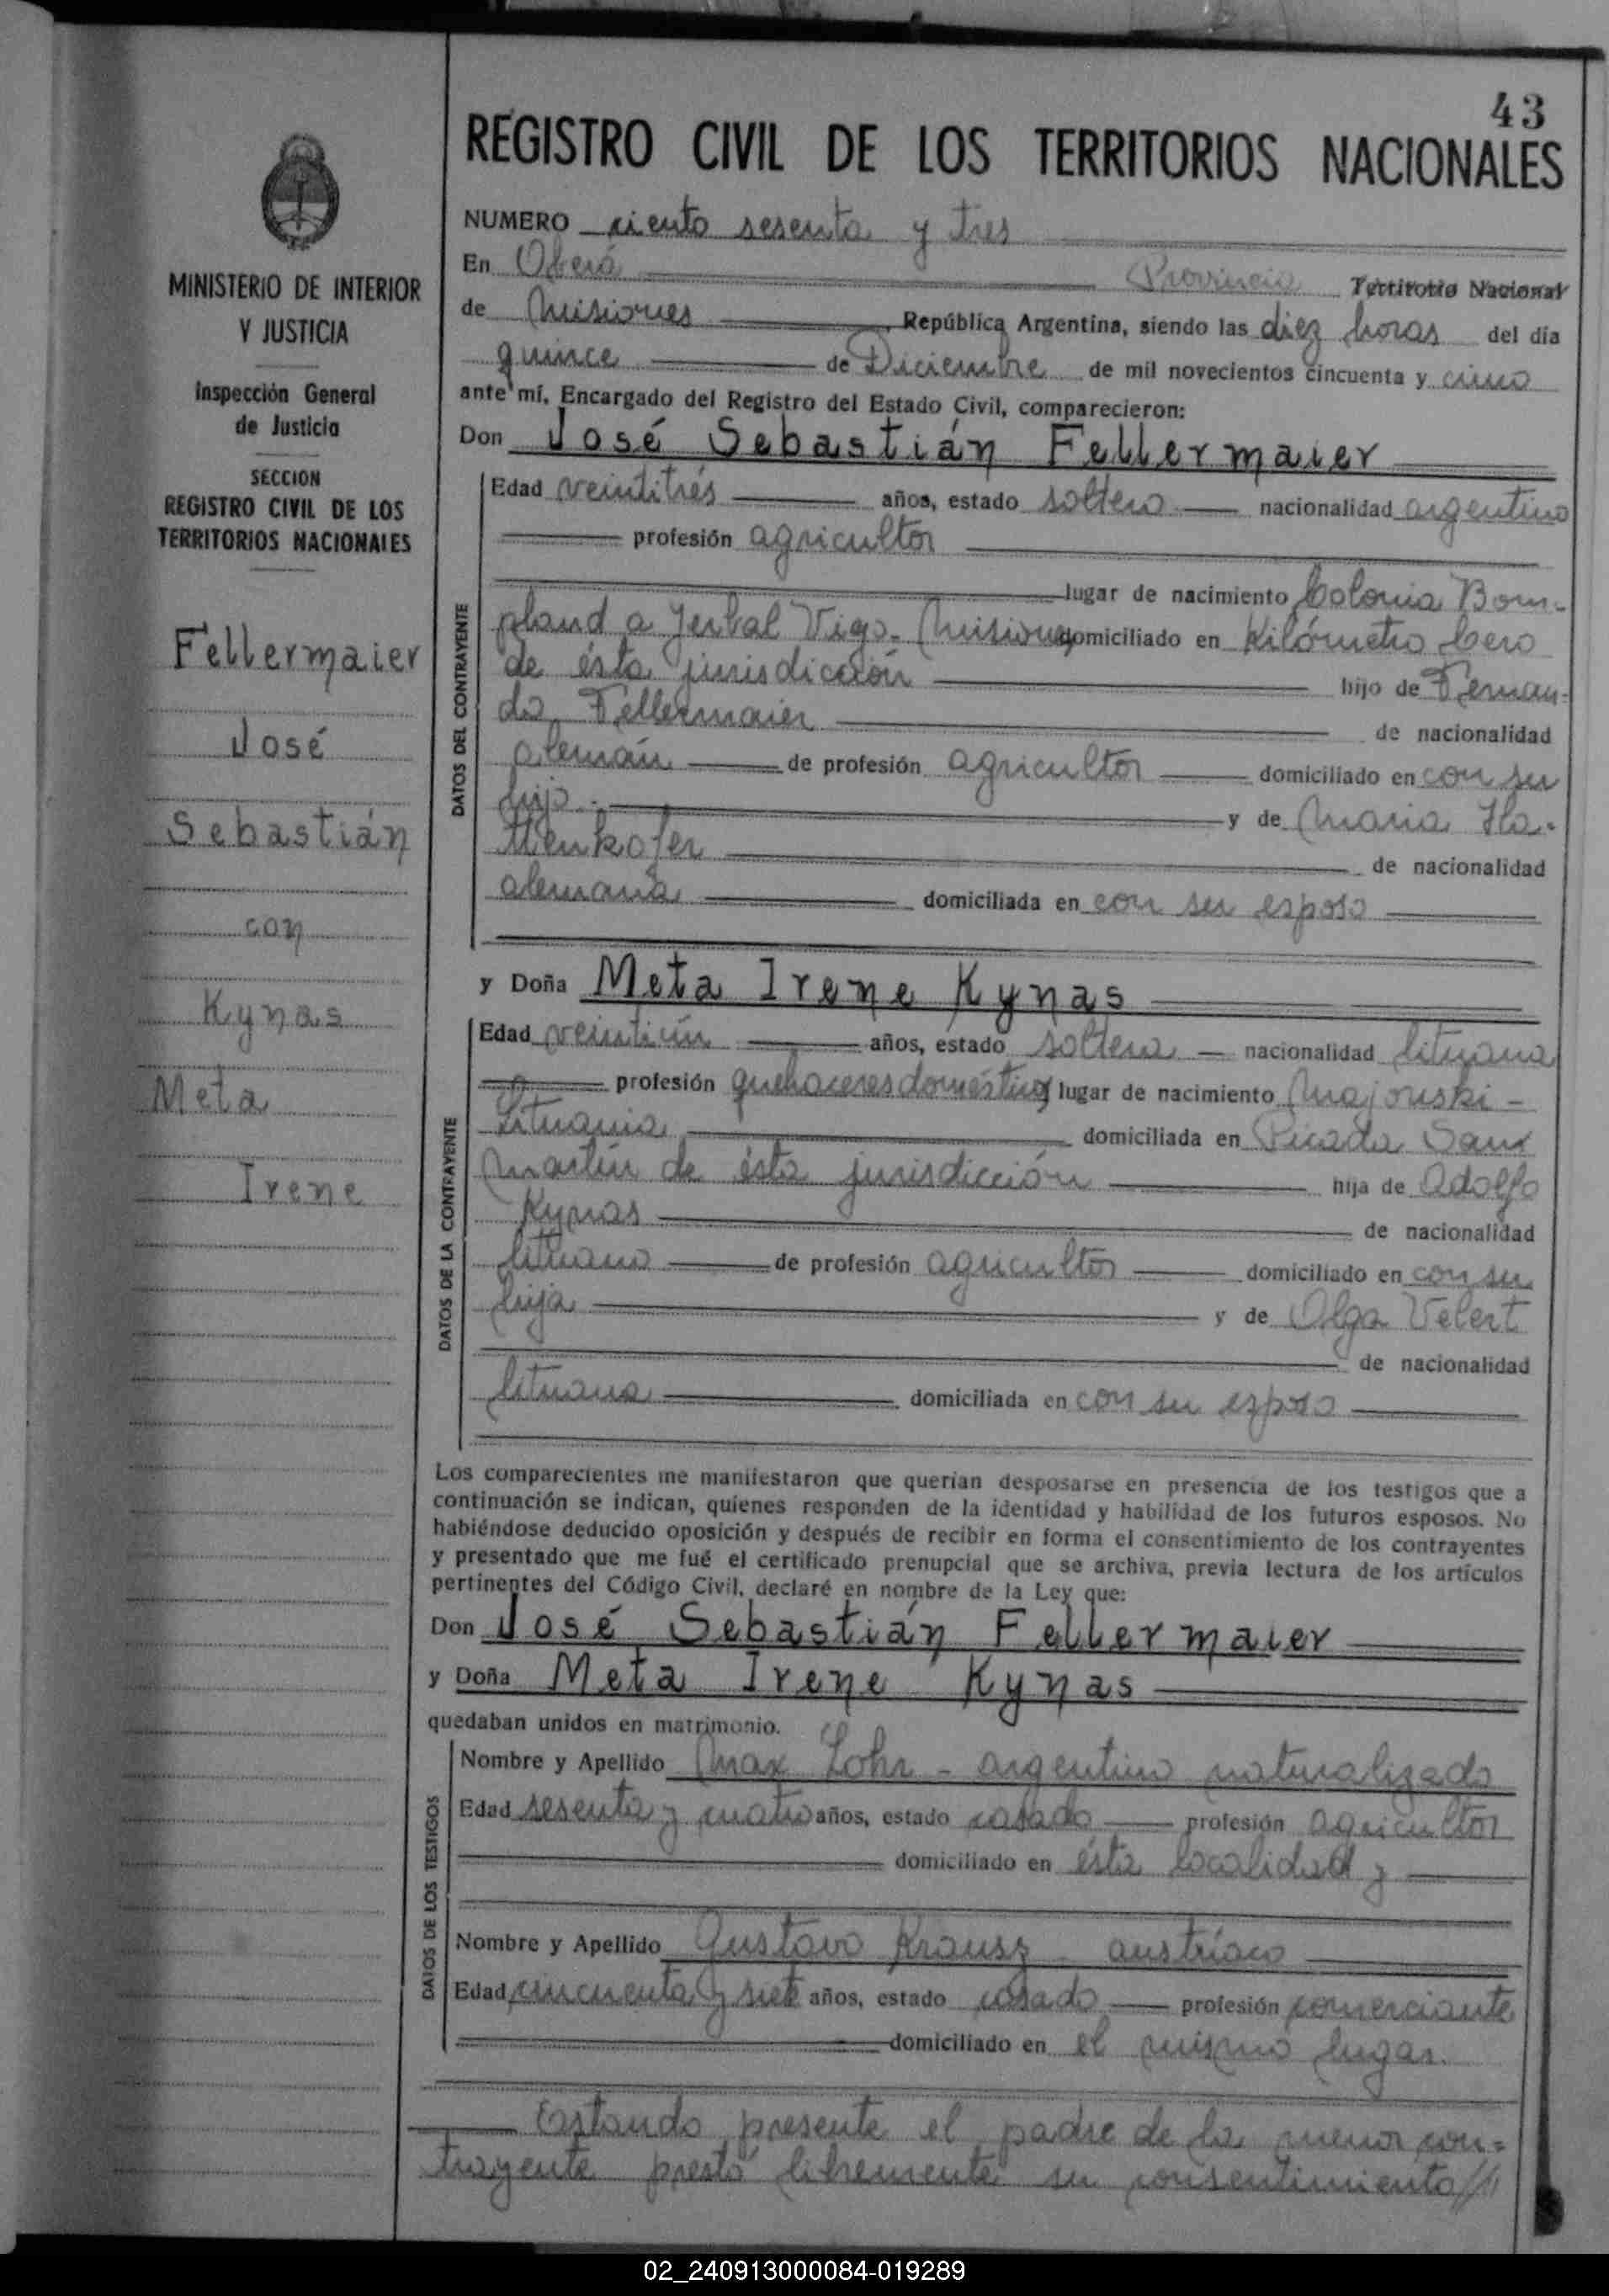 43
REGISTRO CIVIL DE LOS TERRITORIOS NACIONALES
MINISTERIO DE INTERIOR
Y JUSTICIA
Inspección General
de Justicia
SECCION
REGISTRO CIVIL DE LOS
TERRITORIOS NACIONALES
Fellermaier
José
Sebastián
con
Kynas
Meta
Irene
NUMERO ciento sesenta y tres
En Oberá Provincia Territorio Nacional
de Misiones, República Argentina, siendo las diez horas del día
quince de Diciembre de mil novecientos cincuenta y cinco
ante mí, Encargado del Registro del Estado Civil, comparecieron:
Don José Sebastián Fellermaier
DATOS DEL CONTRAYENTE
Edad veintitrés años, estado soltero nacionalidad argentino
profesión agricultor
lugar de nacimiento Colonia Bom-
pland a Yerbal Vigo-Misiones domiciliado en Kilómetro Cero
de ésta jurisdicción hijo de Fernan-
do Fellermaier de nacionalidad
alemán de profesión agricultor domiciliado en con su
hijo.- y de Maria Ha-
ttenkofer de nacionalidad
alemana domiciliada en con su esposo
y Doña Meta Irene Kynas
DATOS DE LA CONTRAYENTE
Edad veintiún años, estado soltera - nacionalidad lituana
profesión quehaceres domésticos lugar de nacimiento Majouski -
Lituania domiciliada en Picada San
Martín de ésta jurisdicción hija de Adolfo
Kynas de nacionalidad
lituano de profesión agricultor domiciliado en con su
hija y de Olga Velert
de nacionalidad
lituana domiciliada en con su esposo
Los comparecientes me manifestaron que querían desposarse en presencia de los testigos que a
continuación se indican, quienes responden de la identidad y habilidad de los futuros esposos. No
habiéndose deducido oposición y después de recibir en forma el consentimiento de los contrayentes
y presentado que me fué el certificado prenupcial que se archiva, previa lectura de los artículos
pertinentes del Código Civil, declaré en nombre de la Ley que:
Don José Sebastián Fellermaier
y Doña Meta Irene Kynas
quedaban unidos en matrimonio.
DATOS DE LOS TESTIGOS
Nombre y Apellido Max Lohr - argentino naturalizado
Edad sesenta y cuatro años, estado casado profesión agricultor
domiciliado en ésta localidad y
Nombre y Apellido Gustavo Krausz - austríaco
Edad cincuenta y siete años, estado casado profesión comerciante
domiciliado en el mismo lugar.
Estando presente el padre de la menor con-
trayente prestó libremente su consentimiento//
02_240913000084-019289